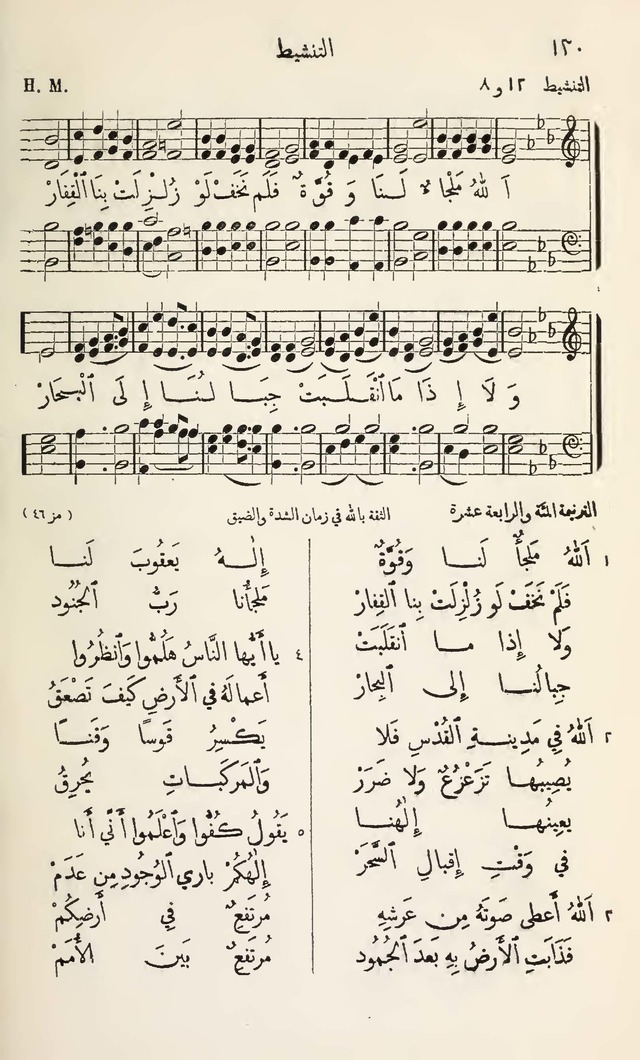 ١٣٠
التنشيط
التنشيط ١٢ و ٨
H. M.
اَ للهُ مَلْجَاءٌ لَــنَا وَ قُوَّةٌ فَلَم نَخَفْ لَوْ زُلْزِلَتْ بِنَا ٱلْقِفَارْ
وَ لَا إِ ذَا مَا ٱنْقَــلَــبَتْ جِبَــا لُــنَــا إِ لَى ٱلْبِحَارْ
الترنيمة المئة والرابعة عشرة
الثقة بالله في زمان الشدة والضيق
( مز ٤٦ )
١ اَللهُ مَلجَأٌ لَنــا وَقُوَّةٌ
فَلَمْ نَخَفْ لَو زُلْزِلَتْ بِنا القِفارْ
وَلا إِذا مــا ٱنقَلَبَتْ
جِبالُنــا إِلى البِحارْ
٢ اَللهُ فِي مَدِينــةِ ٱلقُدْسِ فَلا
يُصِيبُهــا تَزَعْزُعٌ وَلا ضَرَرْ
يعِينُهــا إِلٰهُنــا
في وَقْتِ إِقبالِ ٱلسَّحَرْ
٣ اَللهُ أَعطى صَوتَهُ مِن عَرشِهِ
فَذَابَتِ ٱلأَرضُ بِهِ بَعدَ ٱلجُمُود
إِلــهُ يَعقُوبَ لَنــا
مَلجَأُنا رَبُّ ٱلجُنُود
٤ يا أَيُّها النَّاسُ هَلُمُّوا وَٱنظُرُوا
أَعمالَهُ في ٱلأَرضِ كَيفَ تَصْعَقُ
يَكْسِرُ قَوسًا وَقَنــًا
وَٱلمَركَبــاتِ يُحرِقُ
٥ يَقُولُ كُفُّوا وَٱعْلَمُوا أَنِّي أَنا
إِلٰهُكُمْ باري ٱلوُجُودِ مِن عَدَمْ
مُرتَفعٌ فِي أَرضِكُمْ
مُرتَفعٌ بَينَ الأُمَمْ